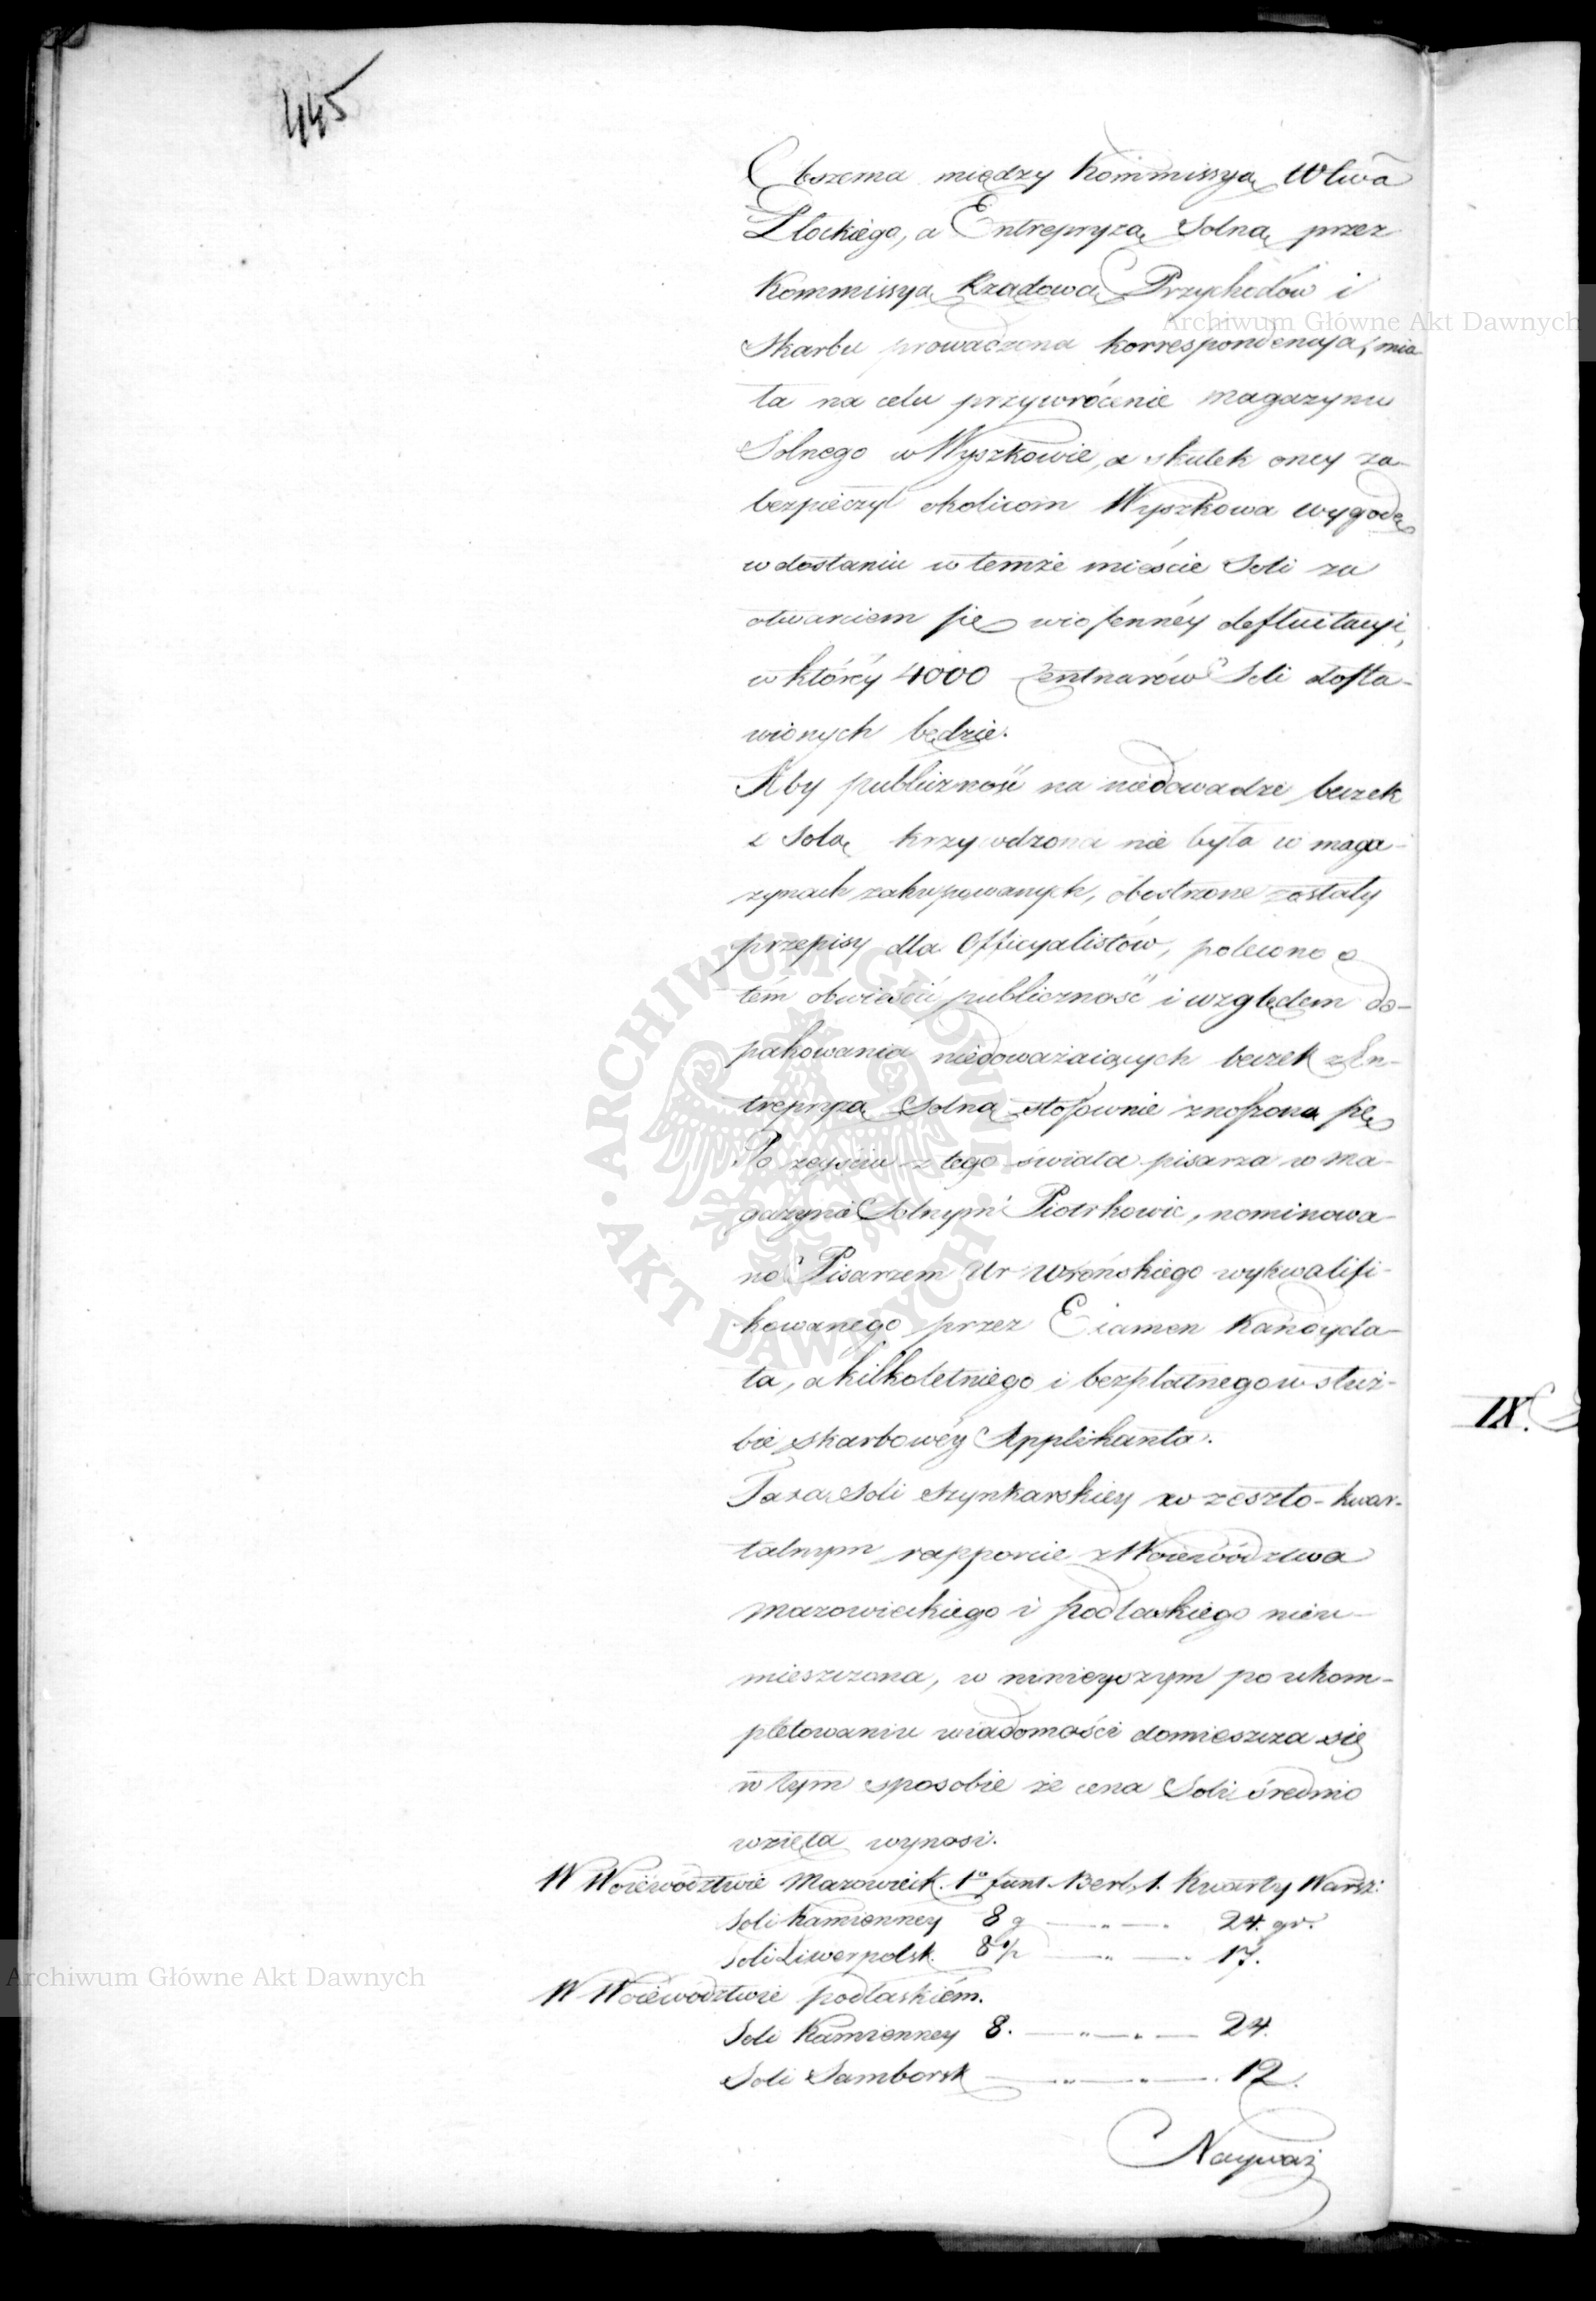 445
Obszerna między Kommissyą Wtwa
Płockiego, a Entrepryzą Solną przez
Kommissyą Rządową Przychodów i
Skarbu prowadzona korrespondencya, mia-
ła na celu przywrócenie magazynu
Solnego w Wyszkowie, a skutek oney za-
bezpieczył okolicom Wyszkowa wygodę
w dostaniu w temże mieście Soli za
otwarciem się wiosennéy defluitacyi,
w któréy 4000 Centnarów Soli dosta-
wionych będzie.
Aby publiczność na niedowadze beczek
z Solą krzywdzona nie była w maga-
zynach zakupowanych, obostrzone zostały
przepisy dla Officyalistów, polecono o
tém obwieścić publiczność i względem do-
pakowania niedoważaiących beczek z En-
trepryzą Solną stosownie znoszono się
Po zeyściu z tego świata pisarza w Ma-
gazynie Solnym Piotrkowie, nominowa-
no Pisarzem Ur Wrońskiego wykwalifi-
kowanego przez Examen Kandyda-
ta, a kilkoletniego i bezpłatnego w służ-
bie skarbowéy Applikanta.
Taxa Soli szynkarskiey w zeszło-kwar-
talnym rapporcie z Woiewództwa
Mazowieckiego i podlaskiego nieu-
mieszczona, w ninieyszym po ukom-
pletowaniu wiadomości domieszcza się
w tym sposobie że cena Soli średnio
wzięta wynosi.
W Woiewództwie Mazowieck. 1º funt. Berl. 1. Kwarty Warsz:
Soli Kamienney 8 g — „ — . 24. gr.
Soli Liwerpolsk. 8 ½ — „ — . 17.
W Woiewództwie podlaskiém.
Soli Kamienney 8. — „ — . — 24.
Soli Samborsk — „ — „ — . 12.
Nayważ
IX.
Archiwum Główne Akt Dawnych
Archiwum Główne Akt Dawnych
ARCHIWUM GŁÓWNE · AKT DAWNYCH ·